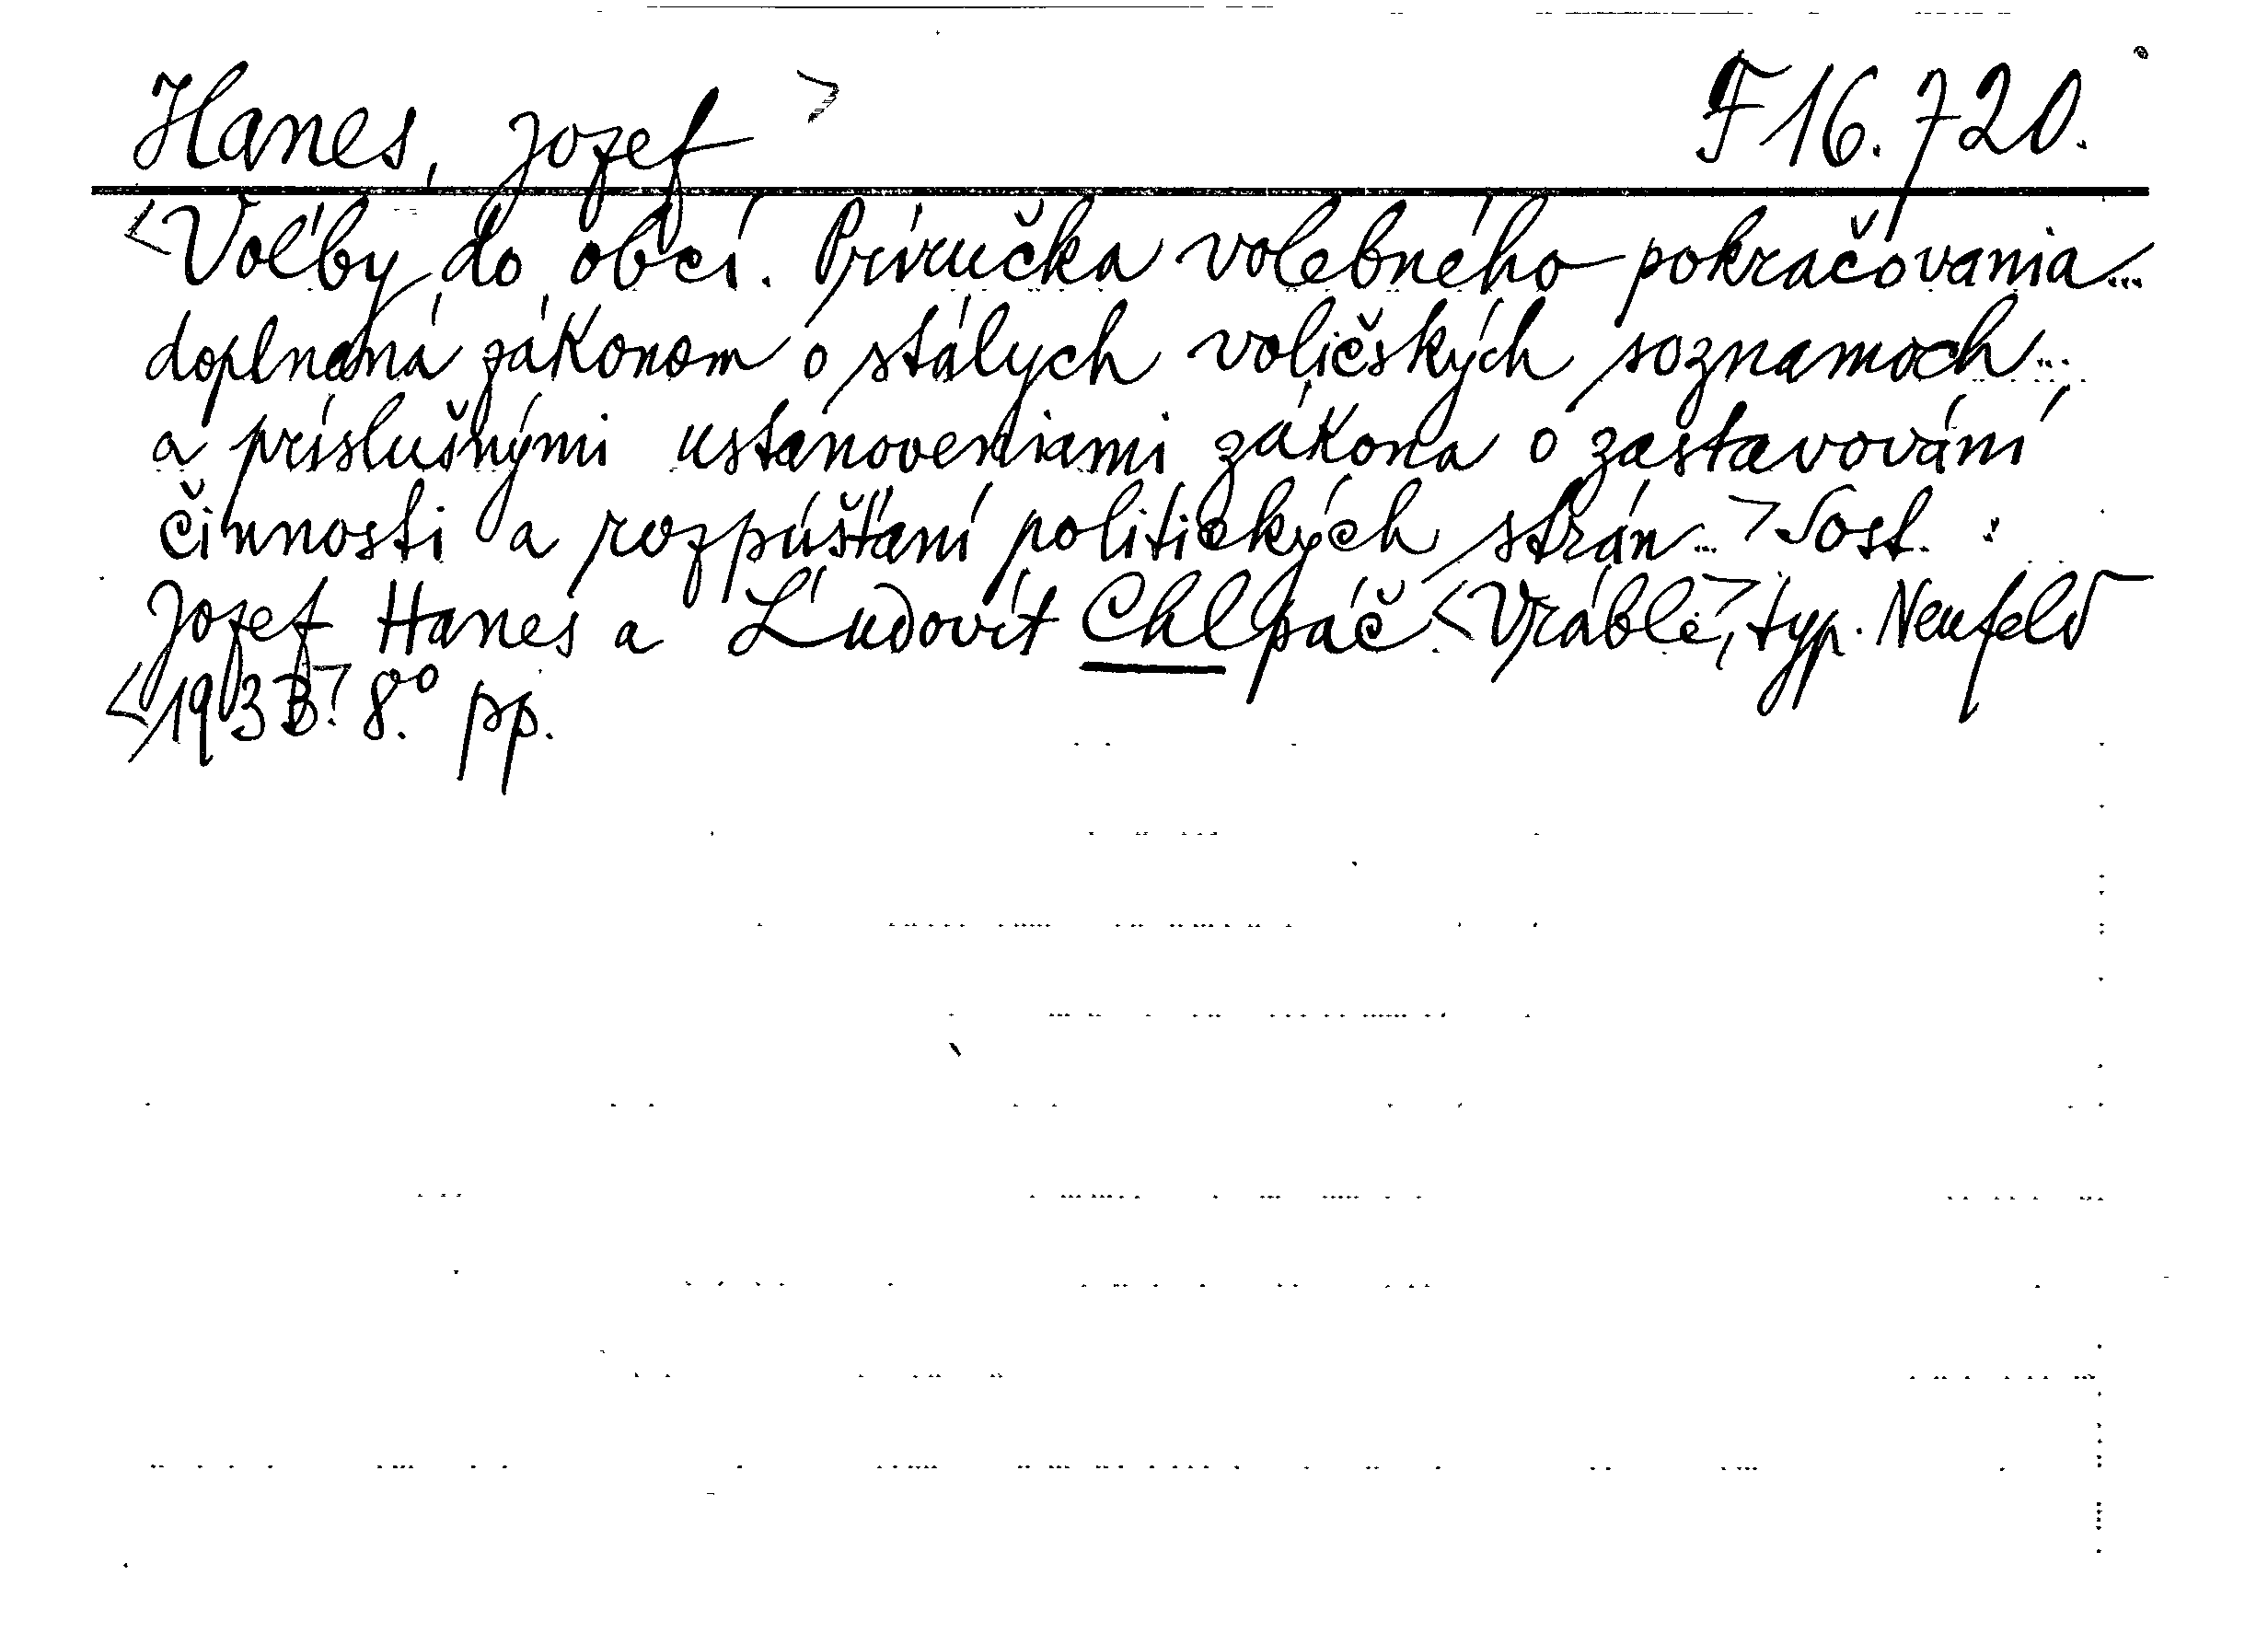 Hanes, Jozef > F 16.720.
<Voľby do obcí. Príručka volebného pokračovania...
doplnená zákonom o stálych voličských soznamoch...
a príslušnými ustanoveniami zákona o zastavování
činnosti a rozpúšťaní politických strán...> Sost. :
Jozef Hanes a Ľudovít Chlpáč. <Vráble>, typ. Neufeld
<193 >. 8.° pp.